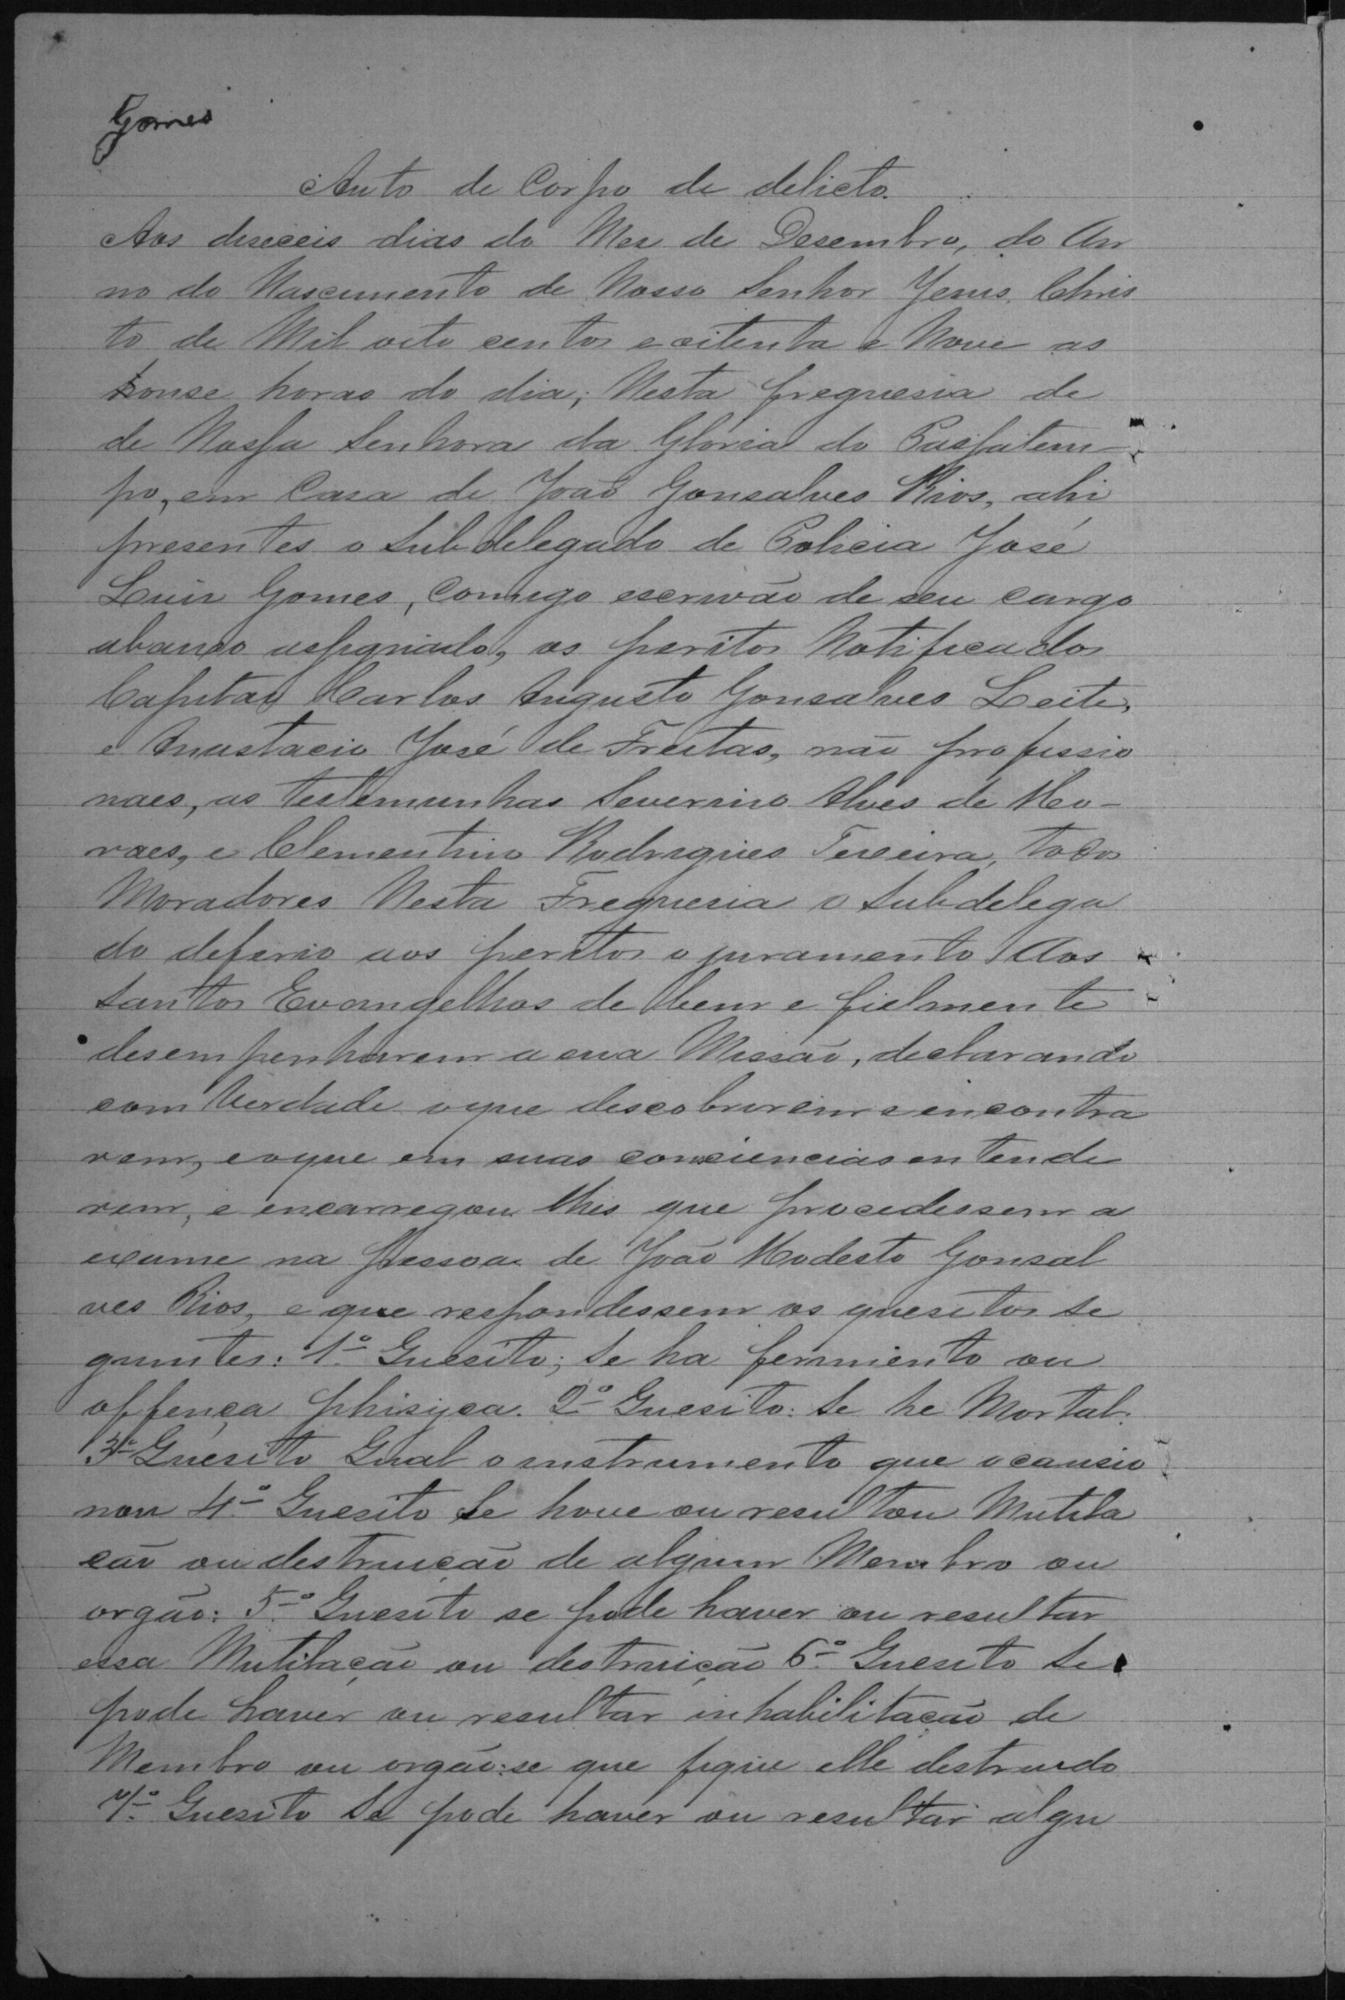 Gomes
Auto de Corpo de delicto.
Aos deseceis dias do Mes de Desembro, do An
no do Nascimento de Nosso Senhor Jesus Chris
to de Mil oito centos e oitenta e Nove as
honse horas do dia; Nesta freguesia de
de Nossa Senhora da Gloria do Passatem-
po, em Casa de João Gonsalves Rios, ahi
presentes o Subdelegado de Policia José
Luis Gomes, Comigo escrivão de seu cargo
abaixo assignado, os peritos Notificados
Capitão Carlos Augusto Gonsalves Leite,
e Anastacio José de Freitas, não professio
naes, as testemunhas Severino Alves de Mo-
raes, e Clementino Rodrigues Teixeira, todos
Moradores Nesta Freguesia o Subdelega
do deferio aos peritos o juramento Aos
Santos Evangelhos de bem e fielmente
desempenharem a sua Missão, declarando
com Verdade o que descobrirem e encontra
rem, e o que em suas consciencias entende
rem, e encarregou lhes que procedessem a
exame na pessoa de João Modesto Gonsal
ves Rios, e que respondessem os quesitos Se
guintes: 1º Quesito; Se ha ferimento ou
offença phisica. 2º Quesito: Se he Mortal:
3º Quesito Qual o instrumento que o causio
nou 4º Quesito Se houve ou resultou Mutila
cão ou destruição de algum Membro ou
orgão: 5º Quesito se pode haver ou resultar
essa Mutilação ou destruição 6º Quesito Se
pode haver ou resultar inhabilitação de
Membro ou orgão: se que fique elle destruido
7º Quesito Se pode haver ou resultar algu